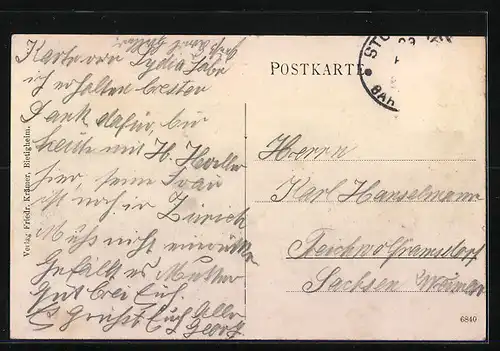 Karte von Lydia habe
ich erhalten besten
Dank dafür, bin
heute mit H.
hier, seine Frau
ist noch in Zürich
Muss nicht
Gefällt es Mutter
gut bei Euch.
Es Grüsst Euch Alle
Georg
Verlag Friedr. Krämer, Bietigheim.
POSTKARTE
STU
BAH
Herrn
Karl Hanselmann
Teichwolframsdorf
Sachsen Weimar
6840